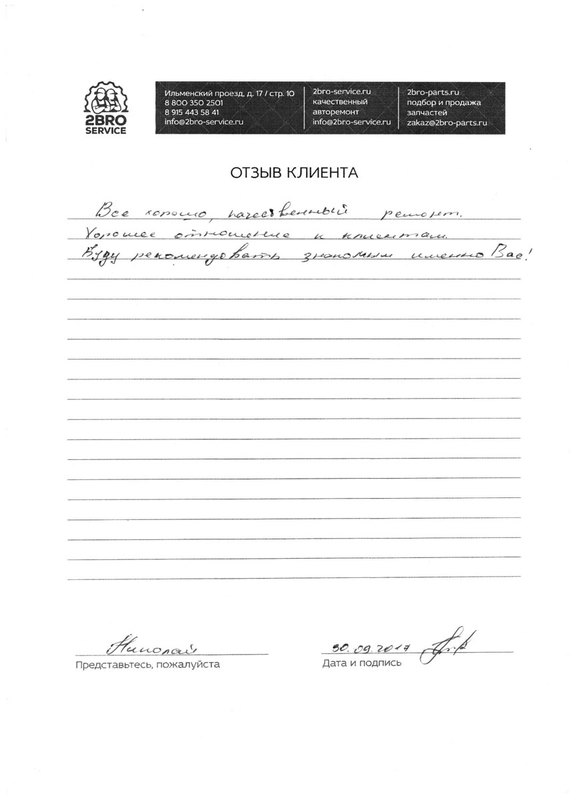 2BRO
SERVICE
Ильменский проезд, д. 17 / стр. 10
8 800 350 2501
8 915 443 58 41
info@2bro-service.ru
2bro-service.ru
качественный
авторемонт
info@2bro-service.ru
2bro-parts.ru
подбор и продажа
запчастей
zakaz@2bro-parts.ru
ОТЗЫВ КЛИЕНТА
Все хорошо, качественный ремонт.
Хорошее отношение к клиентам.
Буду рекомендовать знакомым именно Вас!
Николай
Представьтесь, пожалуйста
30.09.2017
Дата и подпись